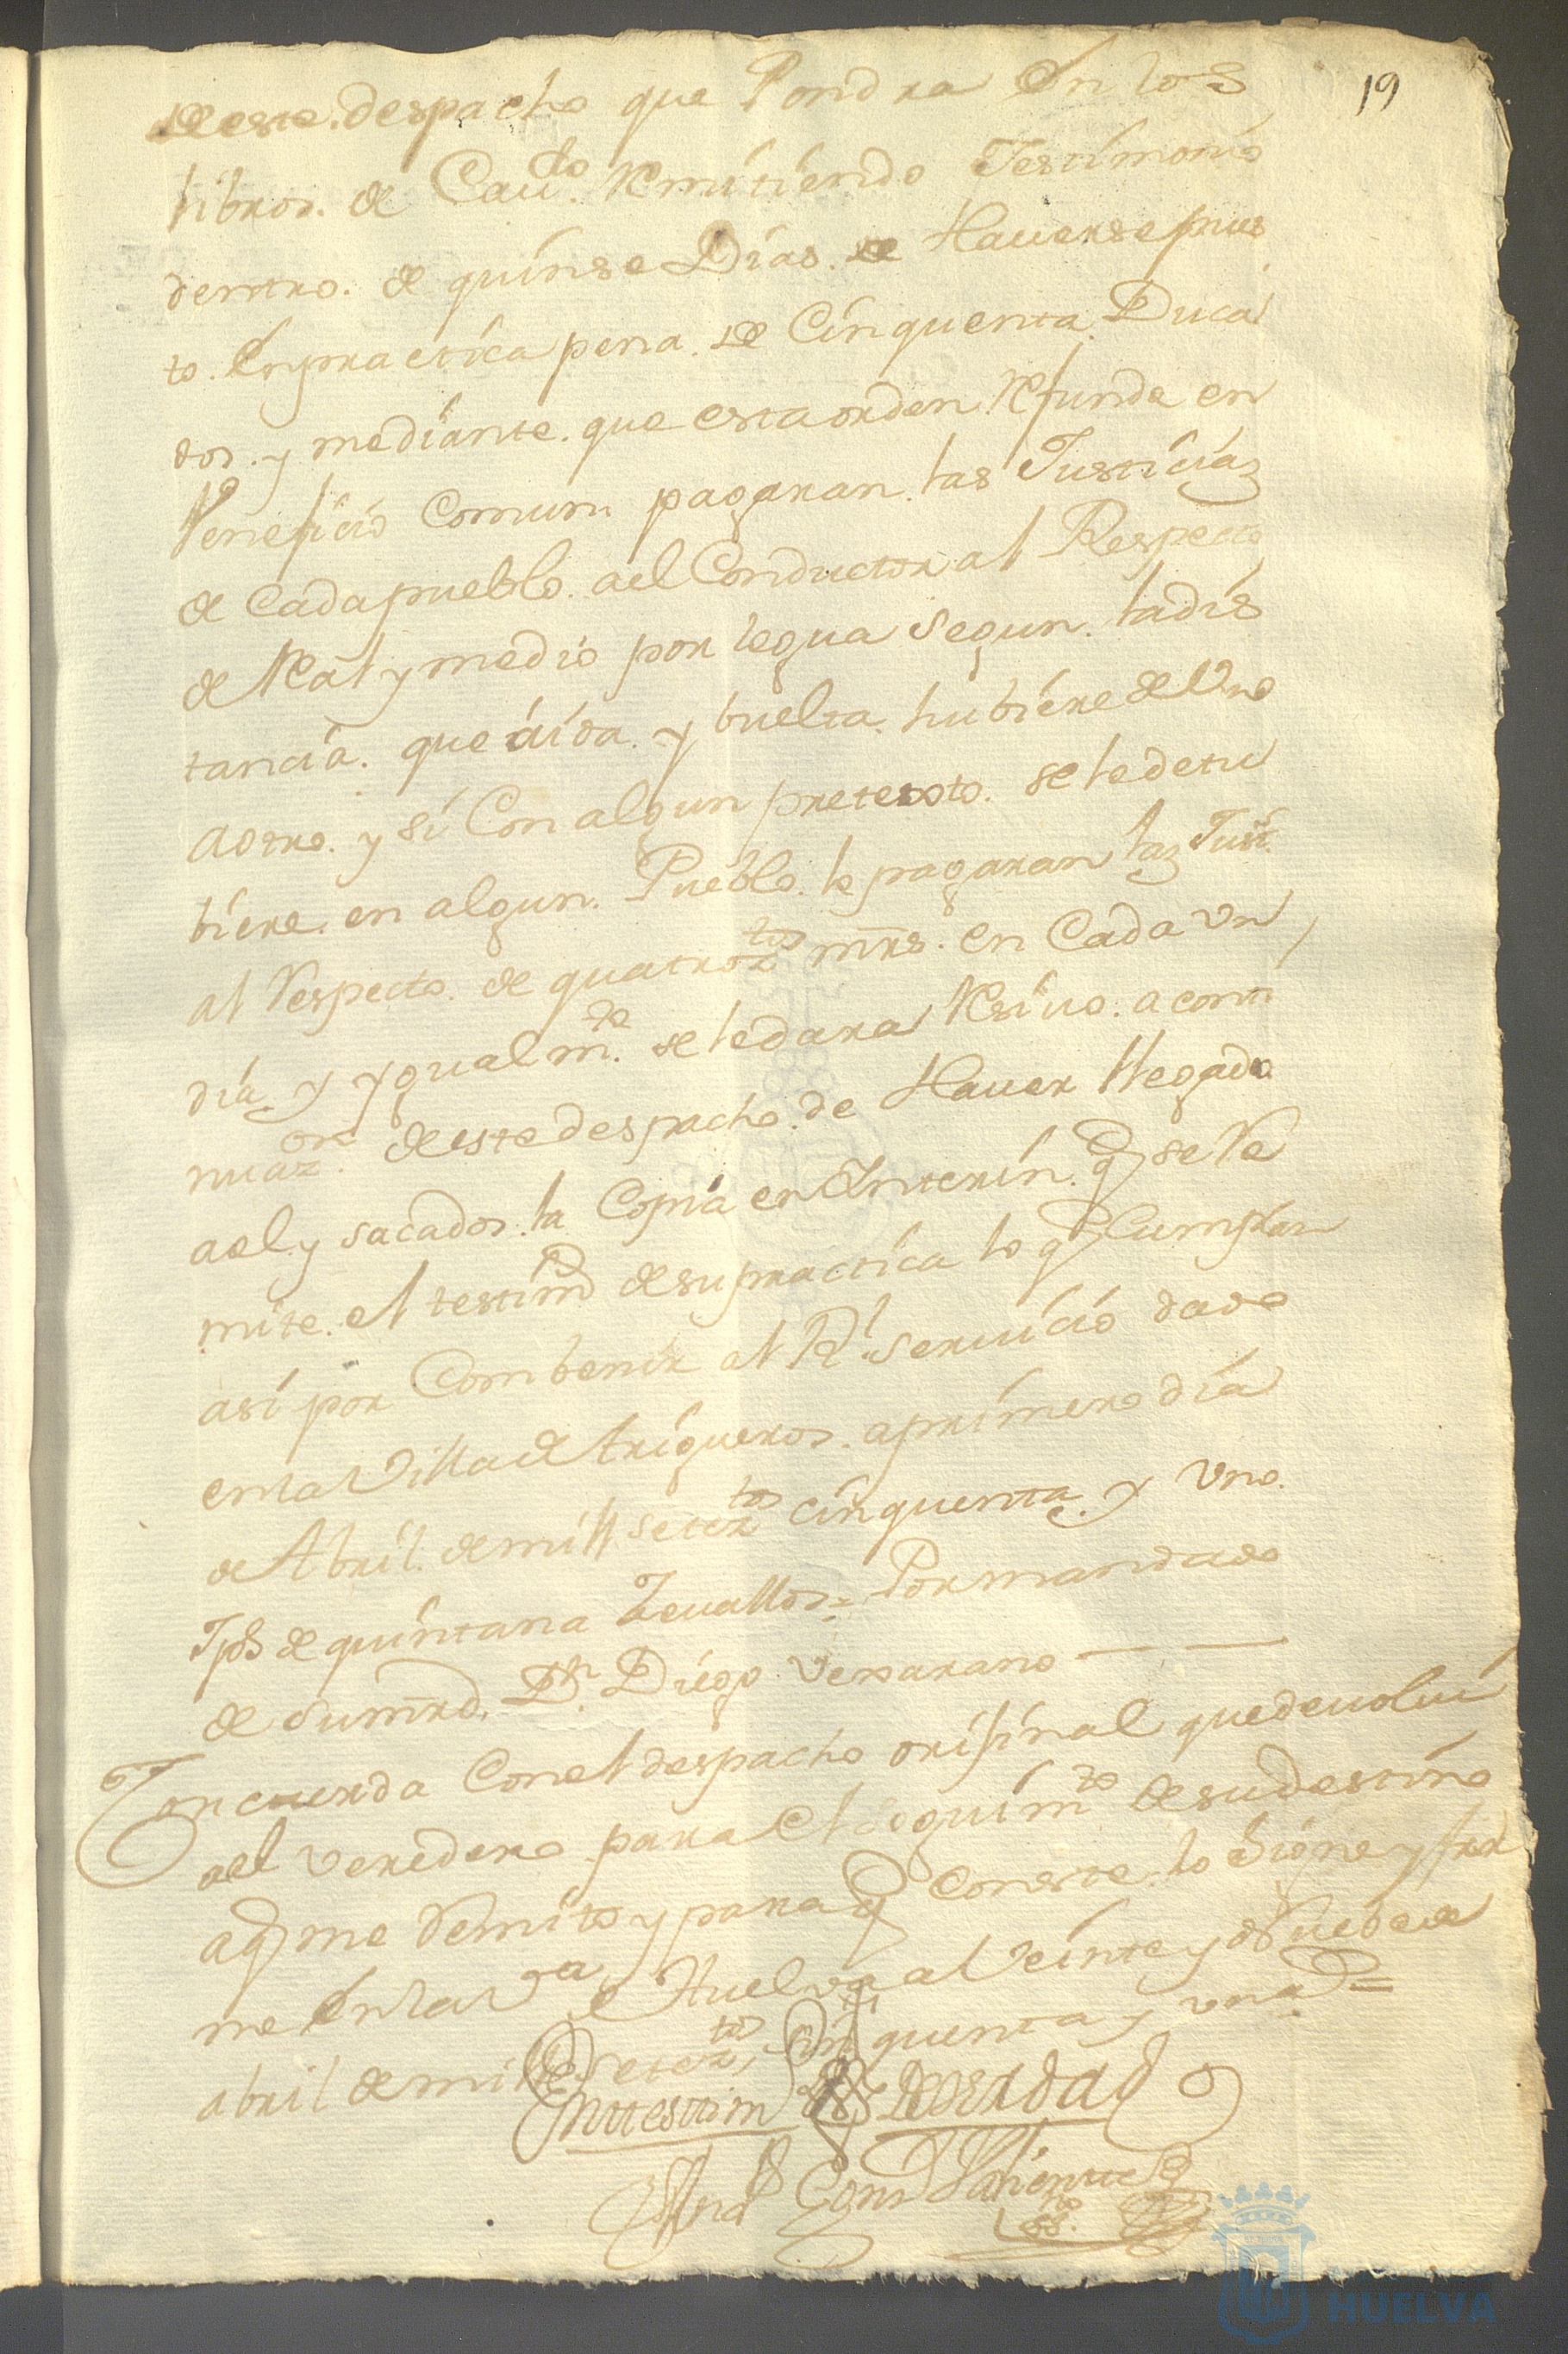 19
de este despacho que Pondra en los
libros. de Caudo. Remitiendo Testimonio
dentro. de quinse Dias. de Hauerse pues
to. en practica pena. de Cinquenta Duca
dos. y mediante. que esta orden. Refunde en
Veneficio Comun. pagaran. las Justicias
de Cada pueblo. ael Conductor al Respecto
de Real y medio por legua segun. la dis
tancia. que áida. y buelta. hubiere de Uno
aotro. y si Con algun pretexto. se le detu
biere. en algun. Pueblo. lo pagaran las Justs.
al Respecto. de quatroztos mrs. en Cada un
dia. y ygualmte. se le dara Resiuo. a conti
nuazon. de este despacho. de Hauer llegado
ael. y sacados. la Copia en Interin. q se Re
mite. el testimo de su practica lo q Cumplan
asi por Combenir al Rl. seruicio dado
en la Villa de trigueros. a primero dia
de Abril. de mill seteztos cinquenta. y Uno.
Iph de quintana Zeuallos = Por mandado
de su mrd. Dn. Diego Vexarano
Concuerda Con el despacho orijinal que deuolui
ael veredero para el seguimto de su destino
aq me Remito y para q Conste. lo signe y fir
me en la va de Huelva a Veinte y Nuebe de
abril de mill seteztos cinquenta y uno =
En testim de verdad
Gonz Valiente
sno.
HUELVA